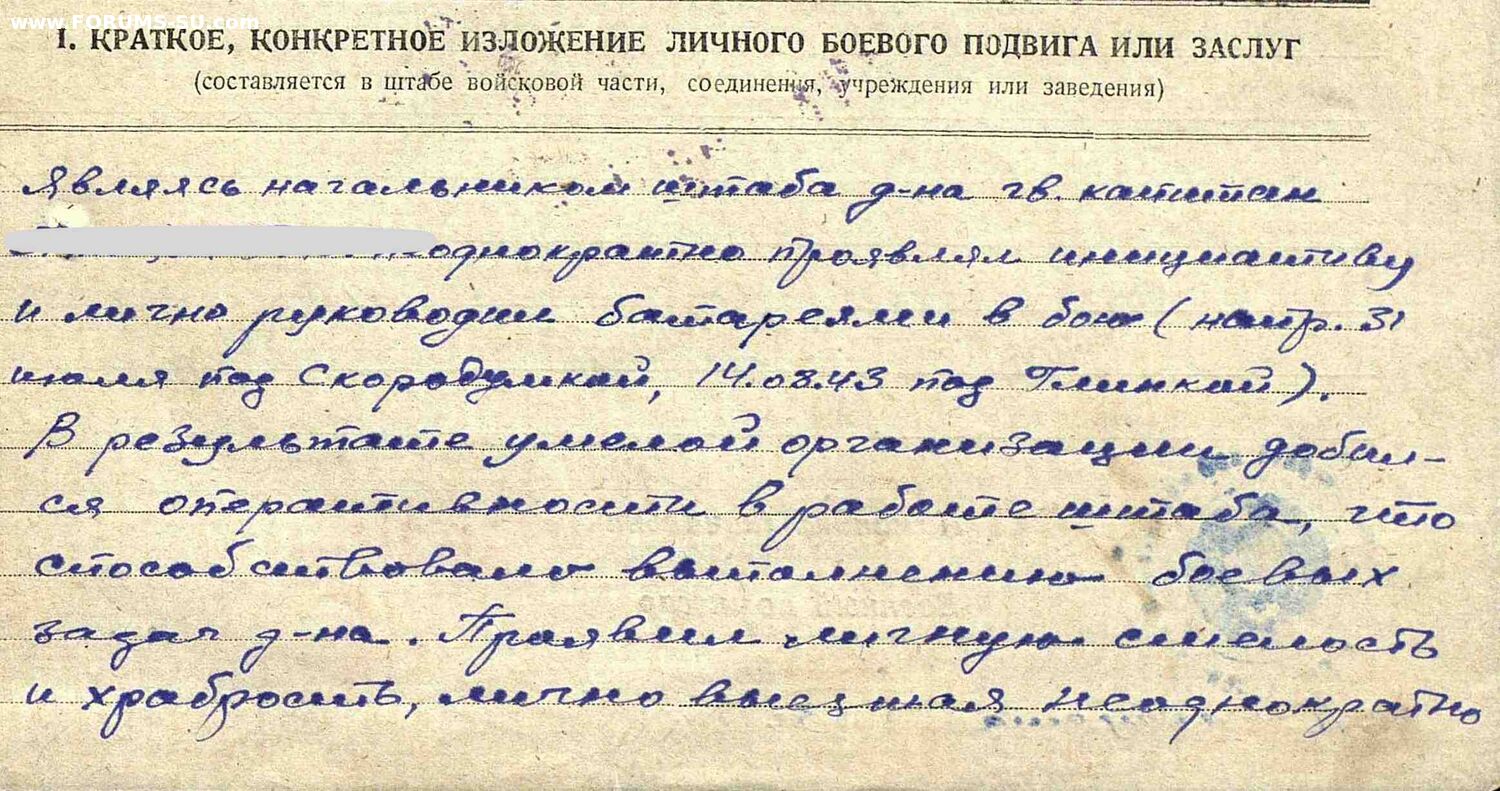 www.FORUMS-SU.com
I. КРАТКОЕ, КОНКРЕТНОЕ ИЗЛОЖЕНИЕ ЛИЧНОГО БОЕВОГО ПОДВИГА ИЛИ ЗАСЛУГ
(составляется в штабе войсковой части, соединения, учреждения или заведения)
Являясь начальником штаба д-на гв. капитан
однократно проявлял инициативу
и лично руководил батареями в бою (напр. 31
июля под Скородумкой, 14.08.43 под Глинкой).
В результате умелой организации добил-
ся оперативности в работе штаба, что
способствовало выполнению боевых
задач д-на. Проявил личную смелость
и храбрость, лично выезжая неоднократно